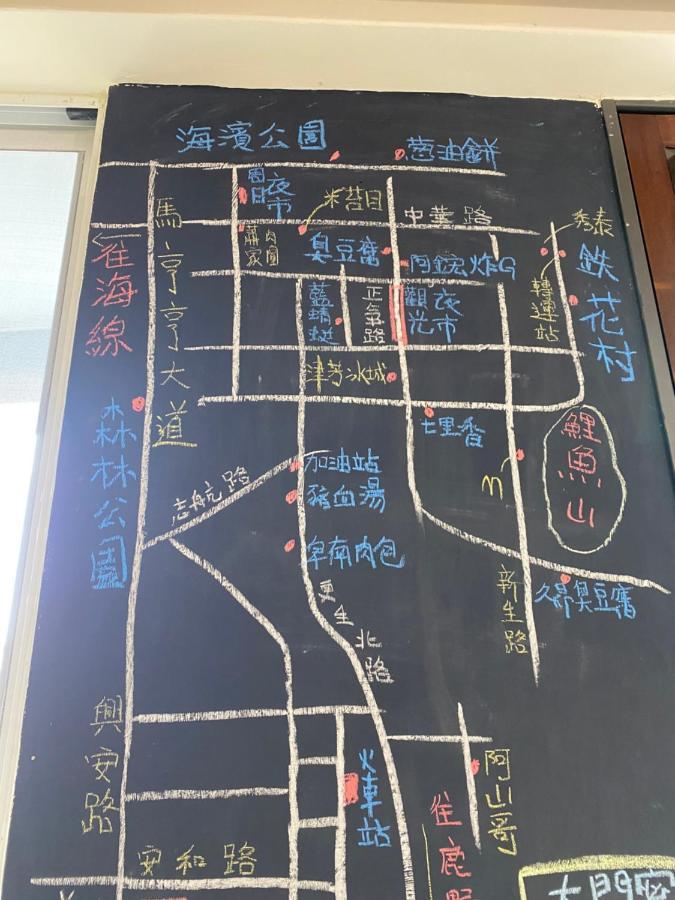 海濱公園
蔥油餅
夜市
米苔目
中華路
秀泰
馬亨亨大道
蕭家肉圓
臭豆腐
阿鋐炸G
轉運站
鉄花村
往海線
藍蜻蜓
正氣路
觀光夜市
津芳冰城
森林公園
七里香
鯉魚山
加油站
志航路
豬血湯
卑南肉包
更生北路
新生路
久昂臭豆腐
興安路
火車站
阿山哥
往鹿野
安和路